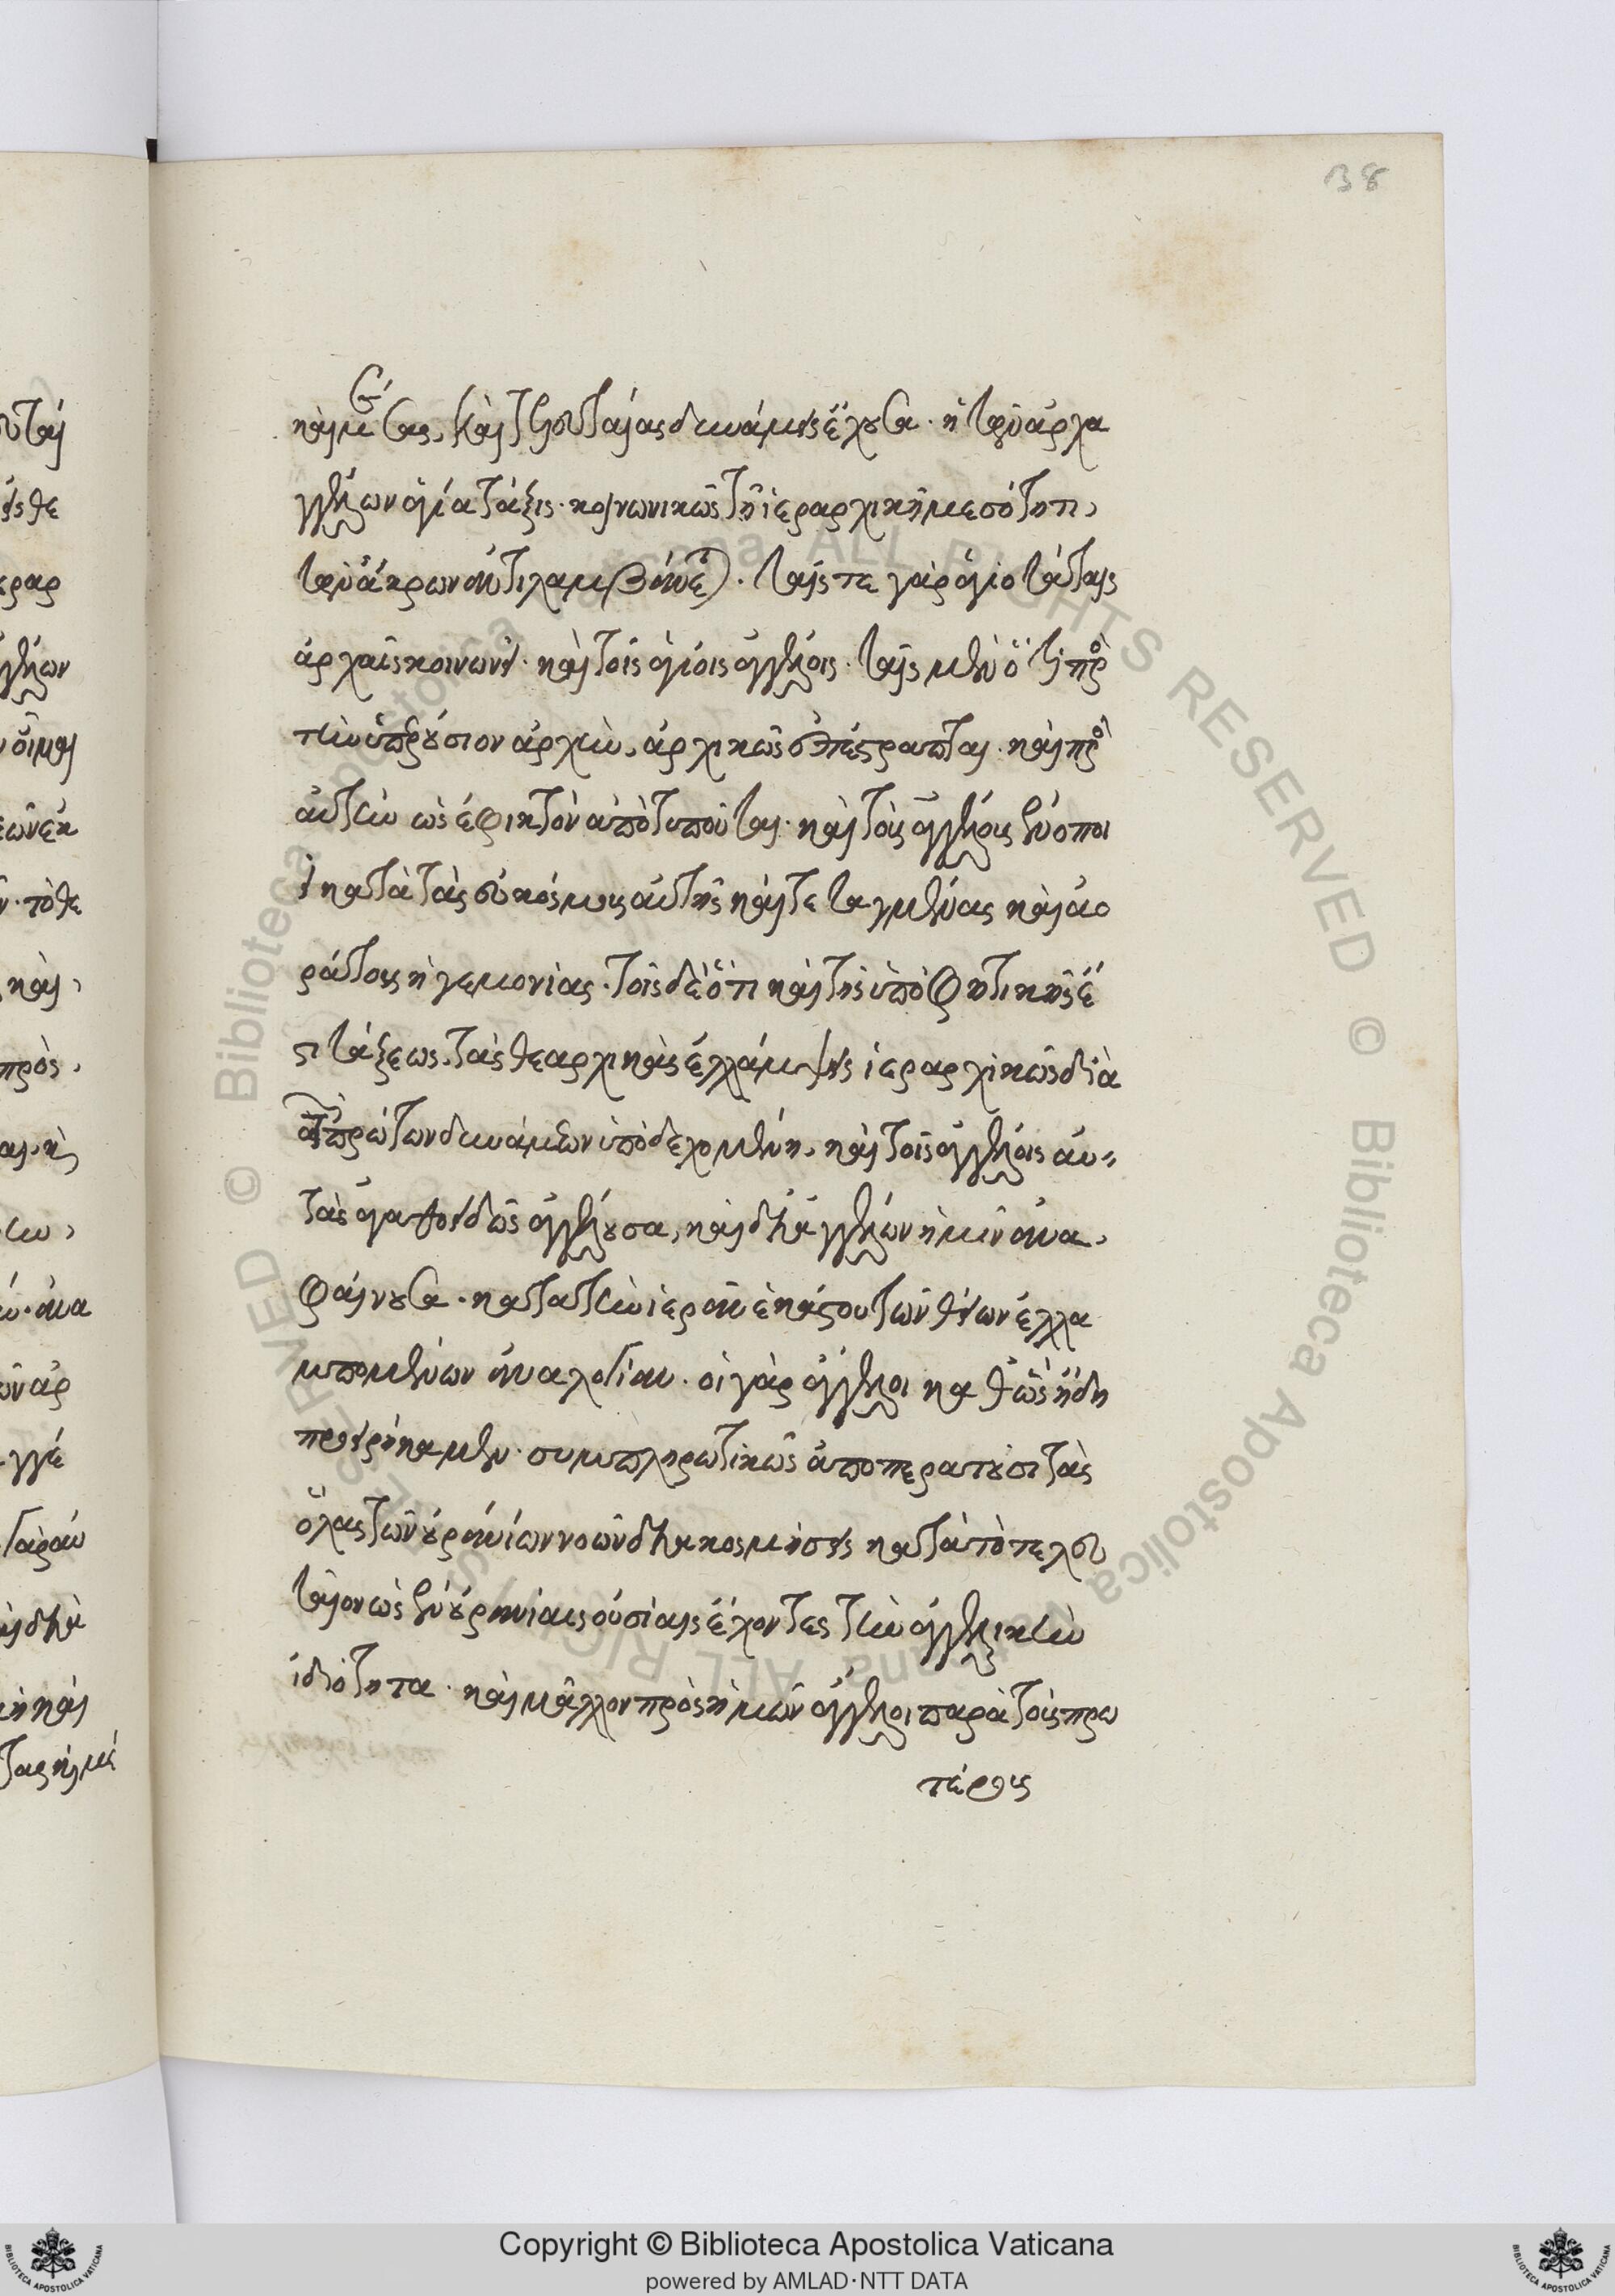 38
καὶ μέσας, καὶ τελευταίας δυνάμεις ἔχουσα. ἡ τῶν ἀρχα
γγέλων ἁγία τάξις. κοινωνικῶς τῇ ἱεραρχικῇ μεσότητι,
τῶν ἄκρων ἀντιλαμβάνεται. ταῖς τε γὰρ ἁγιωτάταις
ἀρχαῖς κοινωνεῖ. καὶ τοῖς ἁγίοις ἀγγέλοις. ταῖς μὲν ὅτι πρὸς
τὴν ὑπερούσιον ἀρχὴν, ἀρχικῶς ἐπέστραπται. καὶ πρὸς
αὐτὴν ὡς ἐφικτὸν ἀποτυποῦται. καὶ τοὺς ἀγγέλους ἑνοποι
εῖ κατὰ τὰς εὐκόσμους αὐτῆς καὶ τεταγμένας καὶ ἀο
ράτους ἡγεμονίας. τοῖς δὲ ὅτι καὶ τῆς ὑποφητικῆς ἐ
στι τάξεως. τὰς θεαρχικὰς ἐλλάμψεις ἱεραρχικῶς διὰ
τῶν πρώτων δυνάμεων ὑποδεχομένη, καὶ τοῖς ἀγγέλοις αὐ
τὰς ἀγαθοειδῶς ἀγγέλουσα, καὶ δι' ἀγγέλων ἡμῖν ἀνα
φαίνουσα. κατὰ τὴν ἱερὰν ἑκάστου τῶν θείων ἐλλα
μπομένων ἀναλογίαν. οἱ γὰρ ἄγγελοι καθὼς ἤδη
προειρήκαμεν. συμπληρωτικῶς ἀποπερατοῦσι τὰς
ὅλας τῶν οὐρανίων νοῶν διακοσμήσεις κατὰ τὸ τελευ
ταῖον ὡς ἐν οὐρανίαις οὐσίαις ἔχοντες τὴν ἀγγελικὴν
ἰδιότητα. καὶ μᾶλλον πρὸς ἡμῶν ἄγγελοι παρὰ τοὺς προ
τέρους
Copyright © Biblioteca Apostolica Vaticana
powered by AMLAD·NTT DATA